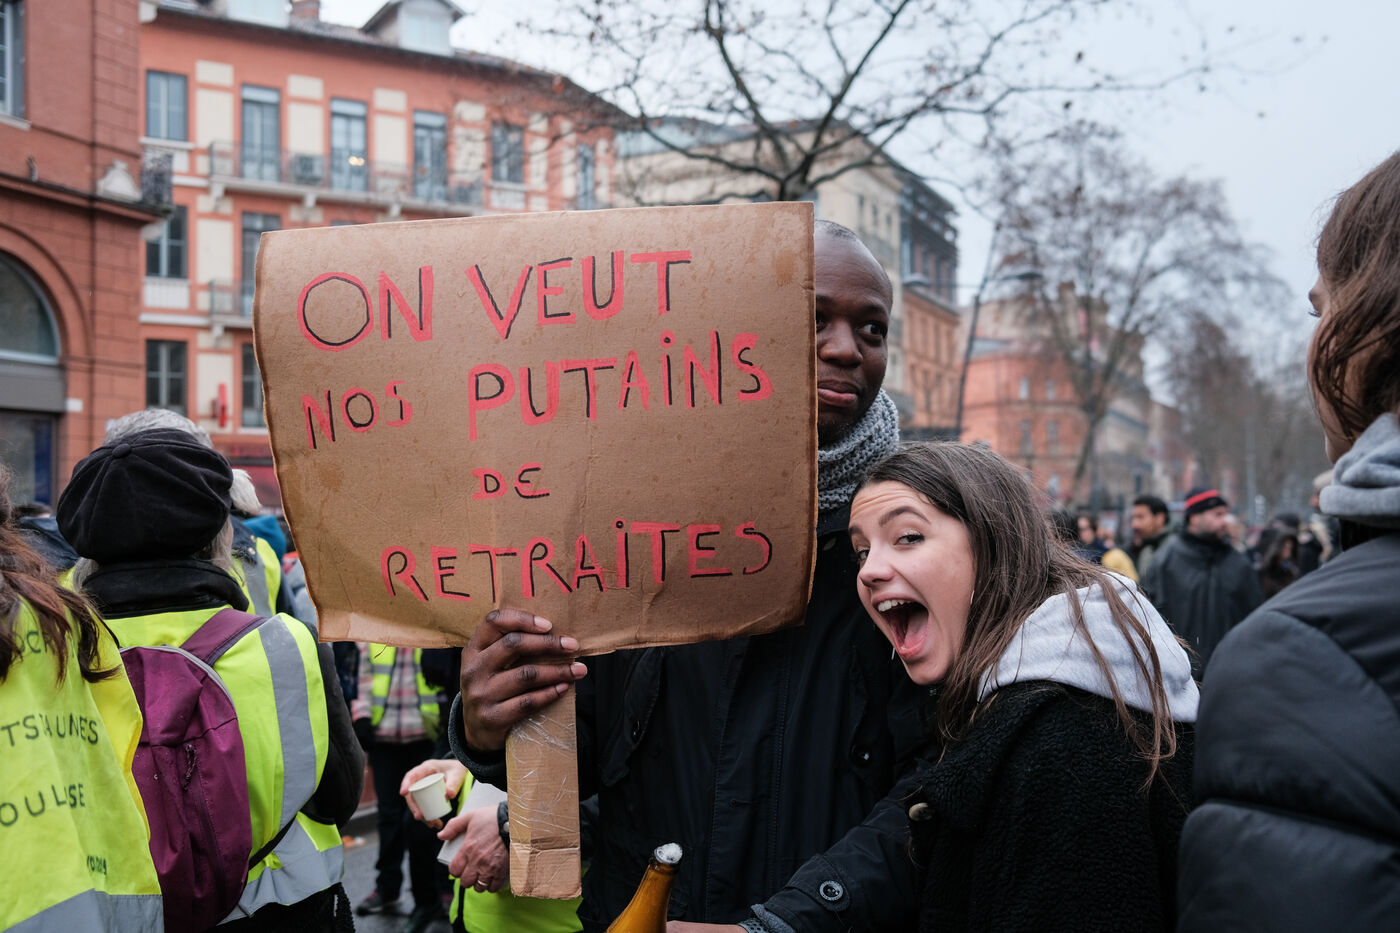 ON VEUT
NOS PUTAiNS
DE
RETRAiTES
OULOUSE